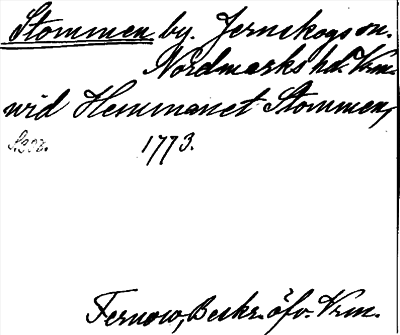 Stommen by. Jernskogs sn.
Nordmarks hd. Vrm.
wid Hemmanet Stommen,
1773.
Fernow, Beskr. öfv. Vrm.